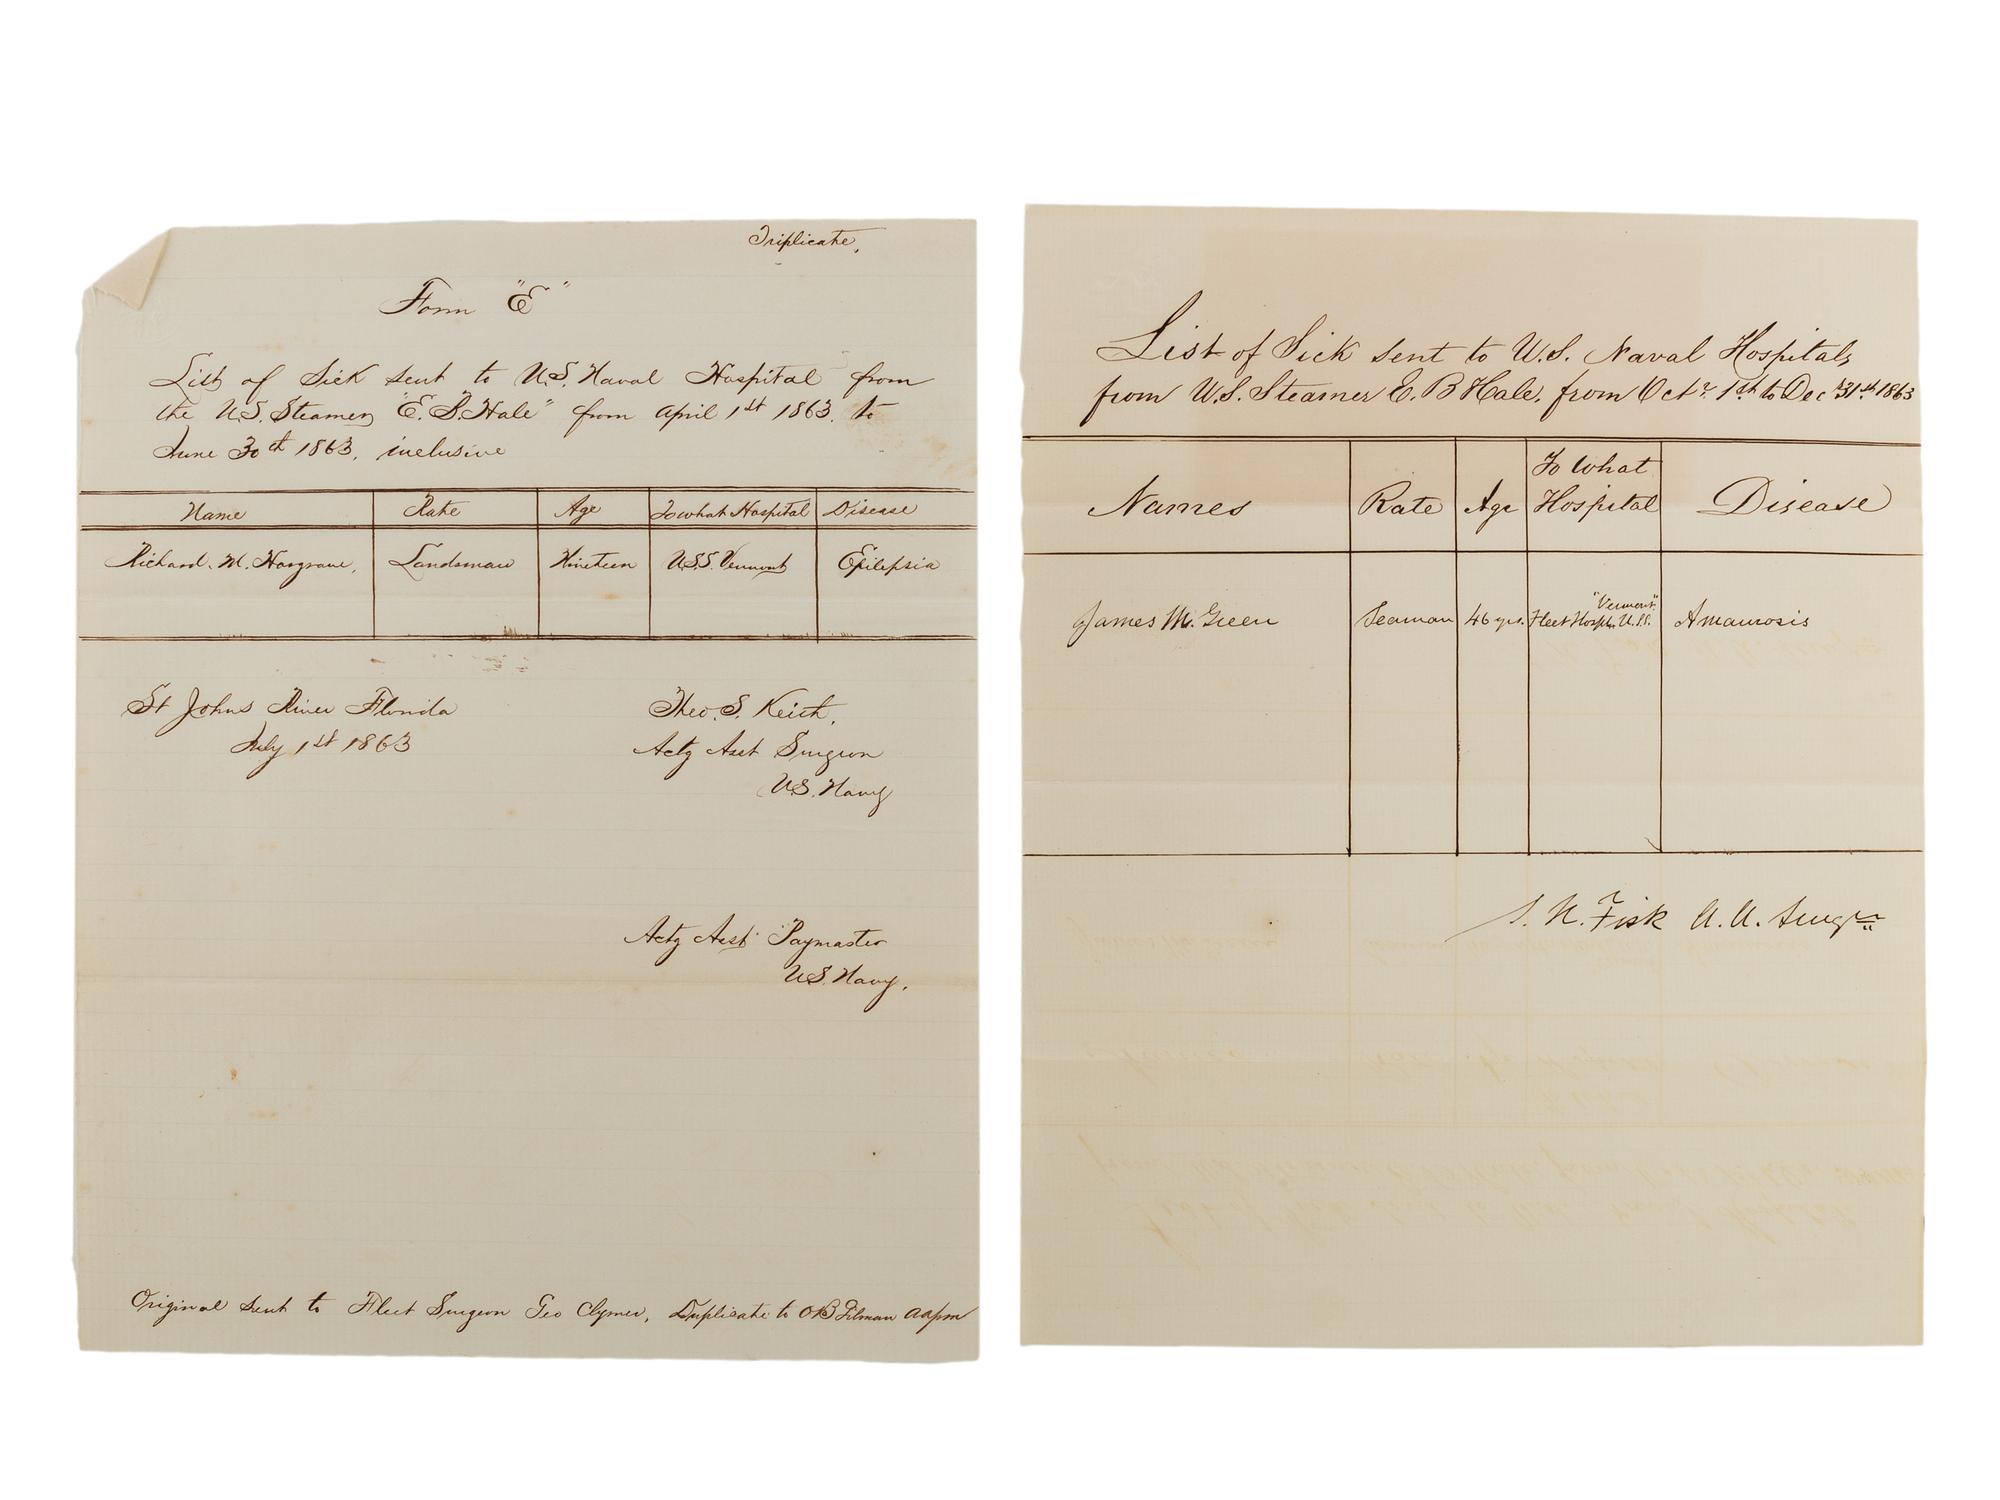 Triplicate,
Form "E"
List of Sick sent to U.S. Naval Hospital from
the U.S. Steamer "E. B. Hale" from April 1st 1863. to
June 30th 1863. inclusive
Name Rate Age To what Hospital Disease
Richard. M. Hargrave, Landsman Nineteen U.S.S. Vermont Epilepsia
St Johns River Florida
July 1st 1863
Theo. S. Keith,
Actg Asst Surgeon
U.S. Navy
Actg Asst Paymaster
U.S. Navy.
Original sent to Fleet Surgeon Geo Clymer, Duplicate to OB Gilman aapm
List of Sick sent to U.S. Naval Hospitals
from U.S. Steamer E. B Hale, from Octr. 1st to Dec 31st 1863
Names Rate Age To What Hospital Disease
James M. Green Seaman 46 yrs. Fleet Hosp. U.S.S. "Vermont" Amaurosis
S. N. Fisk A. A. Surgn